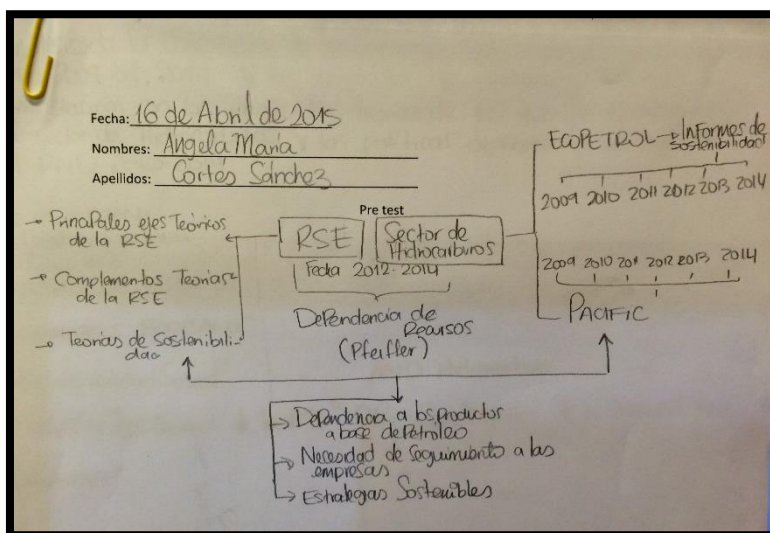 Fecha: 16 de Abril de 2015
Nombres: Angela María
Apellidos: Cortés Sánchez
Pre test
→ Principales ejes Teóricos
de la RSE
→ Complementos Teorias
de la RSE
→ Teorías de Sostenibili-
dad
RSE
Sector de
Hidrocarburos
Fecha 2012-2014
Dependencia de
Recursos
(Pfeiffer)
ECOPETROL → Informes de
Sostenibilidad
2009 2010 2011 2012 2013 2014
2009 2010 2011 2012 2013 2014
PACIFIC
→ Dependencia a los productos
a base de Petroleo
→ Necesidad de seguimiento a las
empresas
→ Estrategias Sostenibles